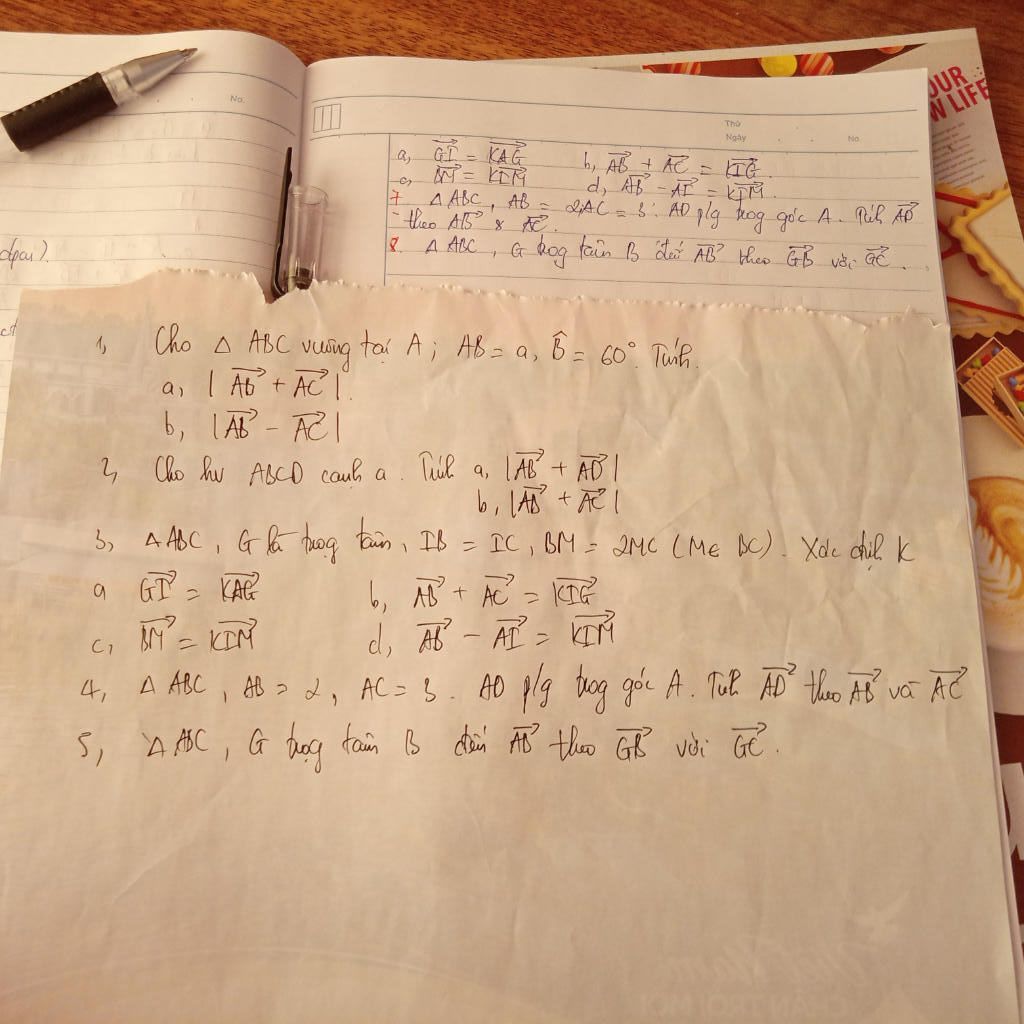 No.
Thứ
Ngày
No.
OUR
W LIFE
a, GI⃗ = KAG⃗ b, AB⃗ + AC⃗ = KIG⃗.
c, BM⃗ = KIM⃗ d, AB⃗ - AI⃗ = KIM⃗.
7. △ ABC, AB = 2, AC = 3. AD p/g trog góc A. Tính AD⃗
theo AB⃗ & AC⃗.
8. △ ABC, G trog tâm B diễn AB⃗ theo GB⃗ với GC⃗.
1, Cho △ ABC vuông tại A; AB = a, B̂ = 60°. Tính.
a, | AB⃗ + AC⃗ |.
b, | AB⃗ - AC⃗ |
2, Cho hv ABCD cạnh a. Tính a, | AB⃗ + AD⃗ |
b, | AB⃗ + AC⃗ |
3, △ ABC, G là trog tâm, IB = IC, BM = 2MC (M∈ BC). Xác định K
a GI⃗ = KAG⃗ b, AB⃗ + AC⃗ = KIG⃗
c, BM⃗ = KIM⃗ d, AB⃗ - AI⃗ = KIM⃗
4, △ ABC, AB = 2, AC = 3. AD p/g trog góc A. Tính AD⃗ theo AB⃗ và AC⃗
5, △ ABC, G trọg tâm B diễn AB⃗ theo GB⃗ với GC⃗.
CHÂN TRỜI MỚI